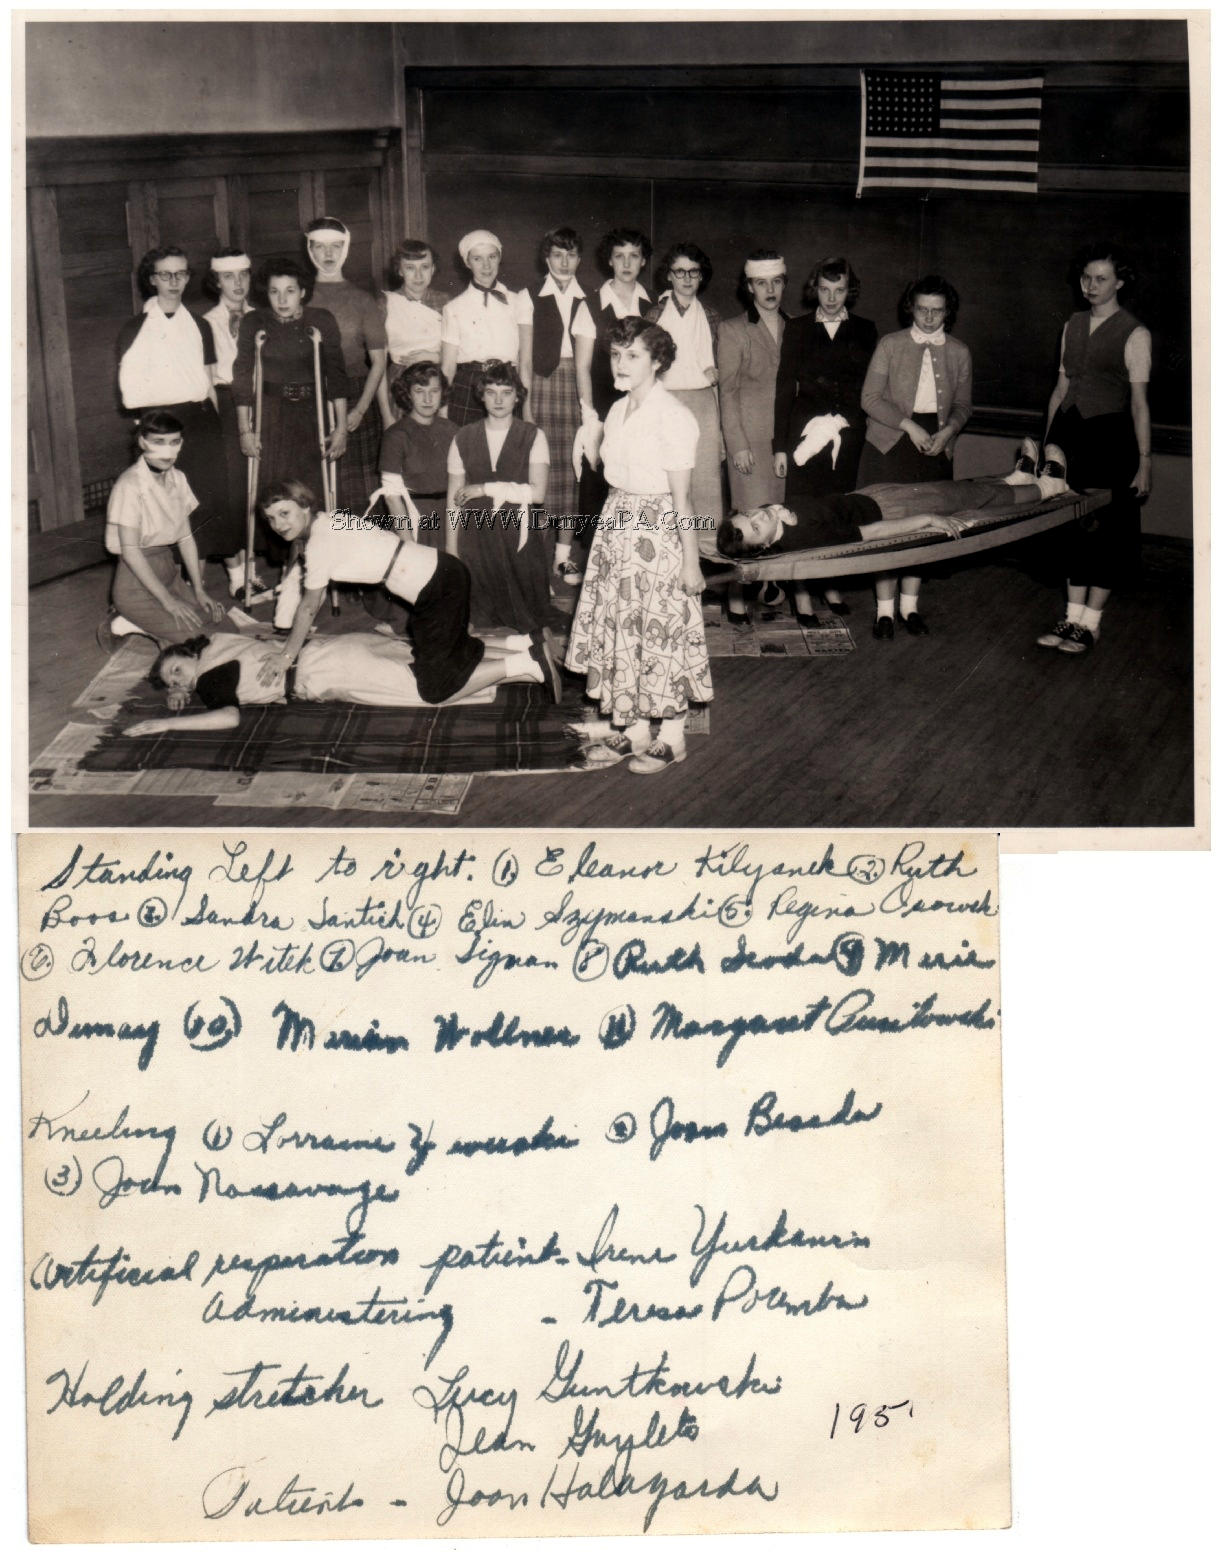 Shown at WWW.DuryeaPA.Com
Standing Left to right. (1.) Eleanor Kilyanek (2.) Ruth
Boos (3.) Sandra Santich (4) Elin Szymanski (5.) Regina
(6.) Florence Witek (7.) Joan Sigman (8) Ruth (9) Merie
(10.) Meriam Wollner (11) Margaret
Kneeling (1) Lorraine (2) Joan
(3) Joan Nossavage
Artificial respiration patient - Irene Yurkanin
Administering - Teresa Poremba
Holding stretcher Lucy Guntkowski
Jean
Patient - Joan Halagarda
1951